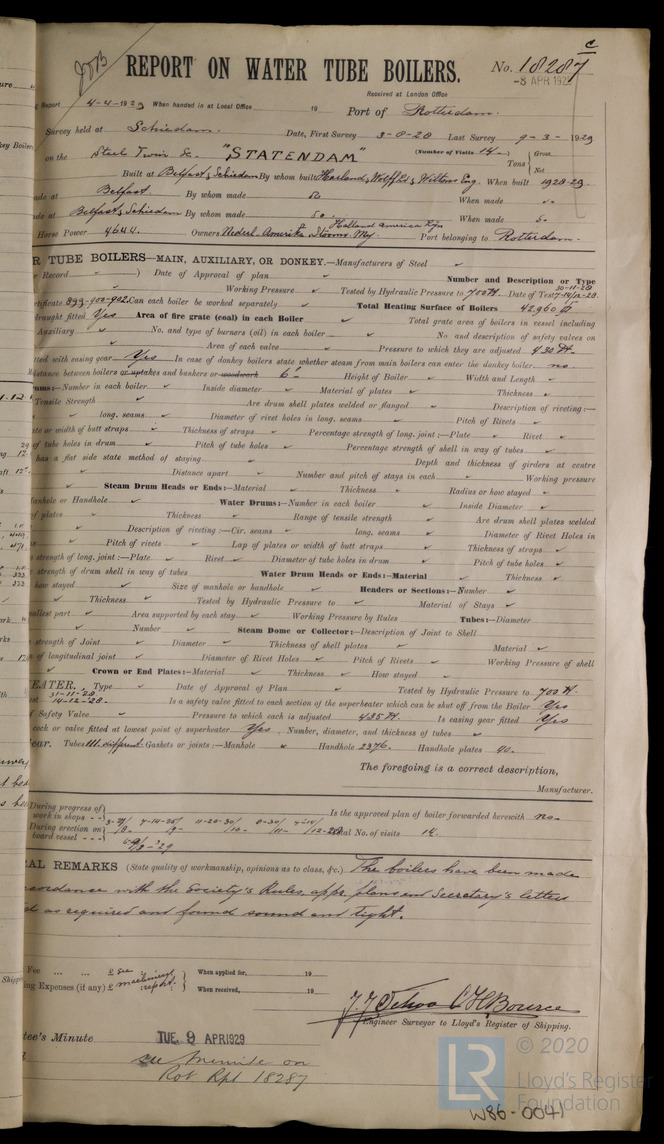 c
JSB
REPORT ON WATER TUBE BOILERS.
No. 18287
-8 APR 192
Received at London Office
Report 4-4-1929 When handed in at Local Office 19 Port of Rotterdam.
Survey held at Schiedam. Date, First Survey 3-8-28 Last Survey 9-3-1929
on the Steel Twin Sc. "STATENDAM" (Number of Visits 14) Tons Gross Net
Built at Belfast & Schiedam By whom built Harland & Wolff Ld & Wiltons Eng. When built 1928-29.
ade at Belfast By whom made Do When made
ade at Belfast & Schiedam By whom made so. When made
Horse Power 4644. Owners Nederl. Amerika Stoomv. My. Holland America Lijn Port belonging to Rotterdam.
R TUBE BOILERS—MAIN, AUXILIARY, OR DONKEY.—Manufacturers of Steel
r Record ) Date of Approval of plan Number and Description or Type
Working Pressure Tested by Hydraulic Pressure to 700 lb. Date of Test 30-11-28
rtificate 899-900-902 Can each boiler be worked separately Total Heating Surface of Boilers 42,960
raught fitted Yes Area of fire grate (coal) in each Boiler Total grate area of boilers in vessel including
Auxiliary No. and type of burners (oil) in each boiler No and description of safety valves on
Area of each valve Pressure to which they are adjusted 430 lb.
ted with easing gear Yes In case of donkey boilers state whether steam from main boilers can enter the donkey boiler no
istance between boilers or uptakes and bunkers or woodwork 6' Height of Boiler Width and Length
rums:—Number in each boiler Inside diameter Material of plates Thickness
Tensile Strength Are drum shell plates welded or flanged Description of riveting:—
long. seams Diameter of rivet holes in long. seams Pitch of Rivets
te or width of butt straps Thickness of straps Percentage strength of long. joint:—Plate Rivet
of tube holes in drum Pitch of tube holes Percentage strength of shell in way of tubes
has a flat side state method of staying Depth and thickness of girders at centre
Distance apart Number and pitch of stays in each Working pressure
Steam Drum Heads or Ends:—Material Thickness Radius or how stayed
anhole or Handhole Water Drums:—Number in each boiler Inside Diameter
f plates Thickness Range of tensile strength Are drum shell plates welded
Description of riveting:—Cir. seams long. seams Diameter of Rivet Holes in
Pitch of rivets Lap of plates or width of butt straps Thickness of straps
strength of long. joint:—Plate Rivet Diameter of tube holes in drum Pitch of tube holes
strength of drum shell in way of tubes Water Drum Heads or Ends:—Material Thickness
how stayed Size of manhole or handhole Headers or Sections:—Number
Thickness Tested by Hydraulic Pressure to Material of Stays
allest part Area supported by each stay Working Pressure by Rules Tubes:—Diameter
Number Steam Dome or Collector:—Description of Joint to Shell
strength of Joint Diameter Thickness of shell plates Material
of longitudinal joint Diameter of Rivet Holes Pitch of Rivets Working Pressure of shell
Crown or End Plates:—Material Thickness How stayed
EATER. Type Date of Approval of Plan Tested by Hydraulic Pressure to 700 lb.
31-11-28
14-12-28. Is a safety valve fitted to each section of the superheater which can be shut off from the Boiler Yes
f Safety Valve Pressure to which each is adjusted 435 lb. Is easing gear fitted Yes
cock or valve fitted at lowest point of superheater Yes. Number, diameter, and thickness of tubes
ear. Tubes different Gaskets or joints:—Manhole Handhole 2376. Handhole plates 40.
The foregoing is a correct description,
Manufacturer.
During progress of work in shops - -
During erection on board vessel - - -
Is the approved plan of boiler forwarded herewith no.
Total No. of visits 14.
AL REMARKS (State quality of workmanship, opinions as to class, &c.) The boilers have been made
cordance with the Society's Rules, appr. plans and Secretary's letters
d as required and found sound and tight.
Fee ... ... £ see machinery report. When applied for, 19
ng Expenses (if any) £ When received, 19
Engineer Surveyor to Lloyd's Register of Shipping.
tee's Minute TUE. 9 APR 1929
see Minute on
Rot Rpt 18287
LR © 2020
Lloyd's Register
Foundation
W86-0041